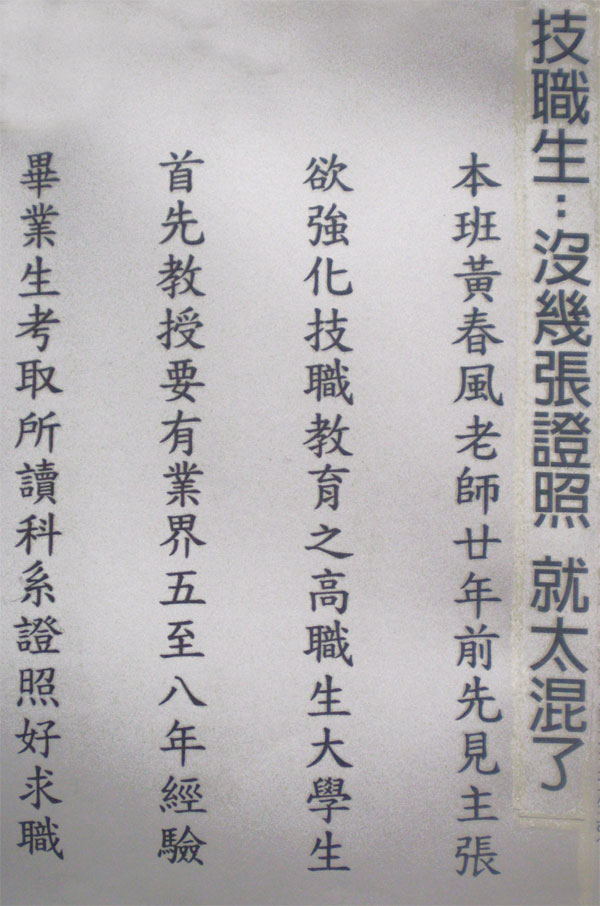 技職生：沒幾張證照 就太混了
本班黃春風老師廿年前先見主張
欲強化技職教育之高職生大學生
首先教授要有業界五至八年經驗
畢業生考取所讀科系證照好求職